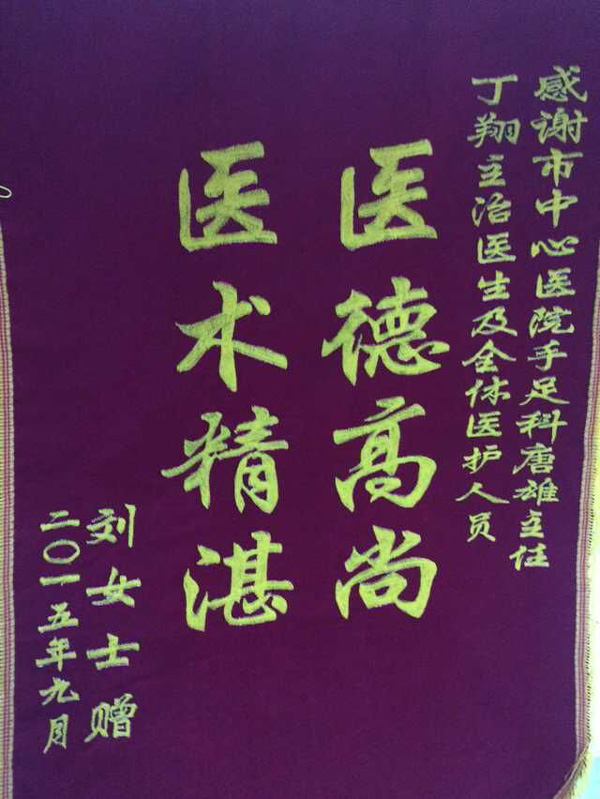 感谢市中心医院手足科唐雄主任
丁翔主治医生及全体医护人员
医德高尚
医术精湛
刘女士赠
二〇一五年九月